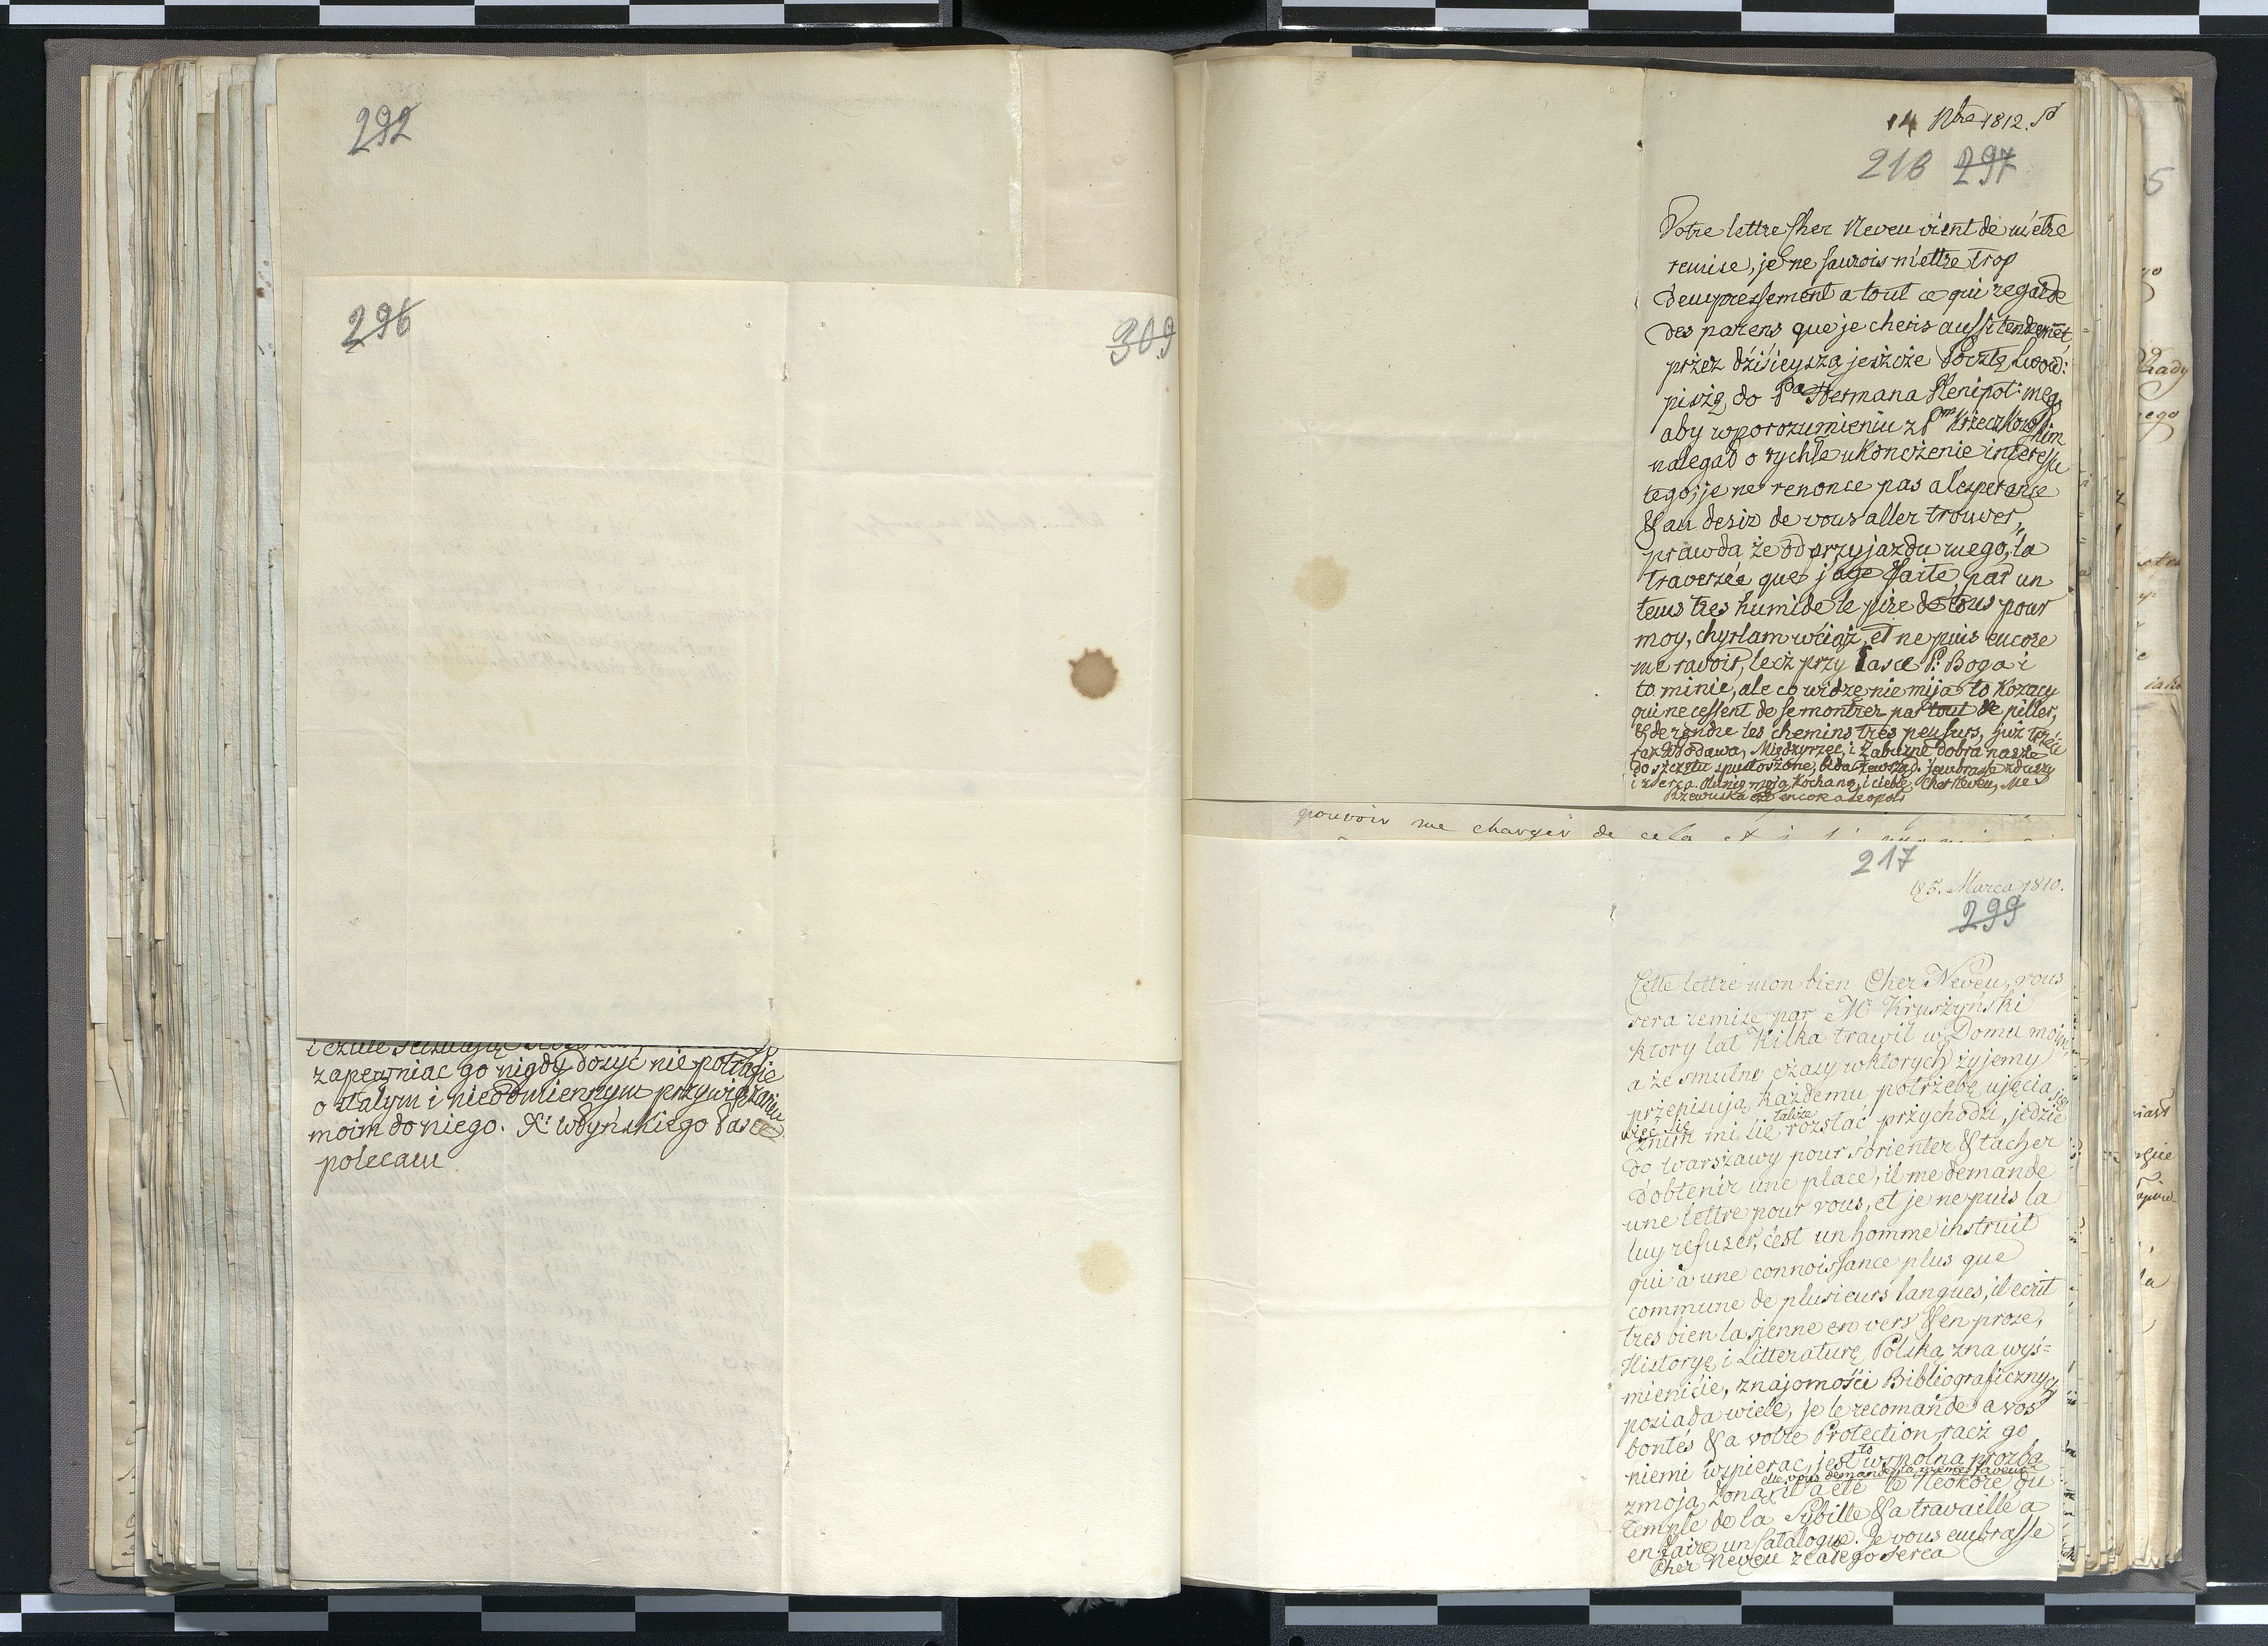 292
296
309
zapewniac go nigdy dosyć nie potrafię
o stałym i nieodmiennym przywiązaniu
moim do niego. X: Wdyńskiego łasce
polecam
14 Nbre 1812.
216 297
Votre lettre Cher Neveu vient de m'etre
remise, je ne saurois mettre trop
d'empressement a tout ce qui regarde
des parens que je cheris aussi tendremēt,
przez dzisieyszą jeszcze Pocztę Lwow:
piszę do Pa Hermana Plenipot: mego
aby w porozumieniu z Pm Krzeczkowskim
nalegał o rychłe ukończenie interessu
tego, je ne renonce pas a l'esperance
& au desir de vous aller trouver,
prawda że od przyjazdu mego, la
traversée que j'aye faite, par un
tems tres humide le pire de tous pour
moy, chyrlam wciąż, et ne puis encore
me ravoir, lecz przy łasce P: Boga i
to minie, ale co widzę nie mija to Kozacy
qui ne cessent de se montrer par tout de piller,
& de rendre les chemins tres peu surs, już trzeci
raz Włodawa, Międzyrzec, i Zabużne dobra nasze
do szczętu spustoszone, bieda zewsząd. j'embrasse z duszy
i z serca moją kochaną, i ciebie Cher Neveu,
encor a Leopol
pouvoir me charger de cela et
217
15. Marca 1810.
299
Cette lettre mon bien Cher Neveu, vous
sera remise par Mr Kruszyński
ktory lat kilka trawił w Domu moim,
a że smutne czasy w ktorych żyjemy
przepisują każdemu potrzebę ujęcia się
więc się także
z nim mi się rozstać przychodzi, jedzie
do Warszawy pour s'orienter & tacher
d'obtenir une place, il me demande
une lettre pour vous, et je ne puis la
luy refuser, c'est un homme instruit
qui a une connoissance plus que
commune de plusieurs langues, il ecrit
tres bien la sienne en vers & en prose,
Historyę i Litteraturę Polską zna wyś=
mienicie, znajomości Bibliograficznych
posiada wiele, je le recomande a vos
bontés & a votre Protection, racz go
to
niemi wspierac, jest wspolna prozba
elle vous demande la meme faveur
z moją Żoną il a eté le Néokore du
Temple de la Sybille & a travaillé a
en faire un Catalogue. Je vous embrasse
Cher Neveu z całego serca